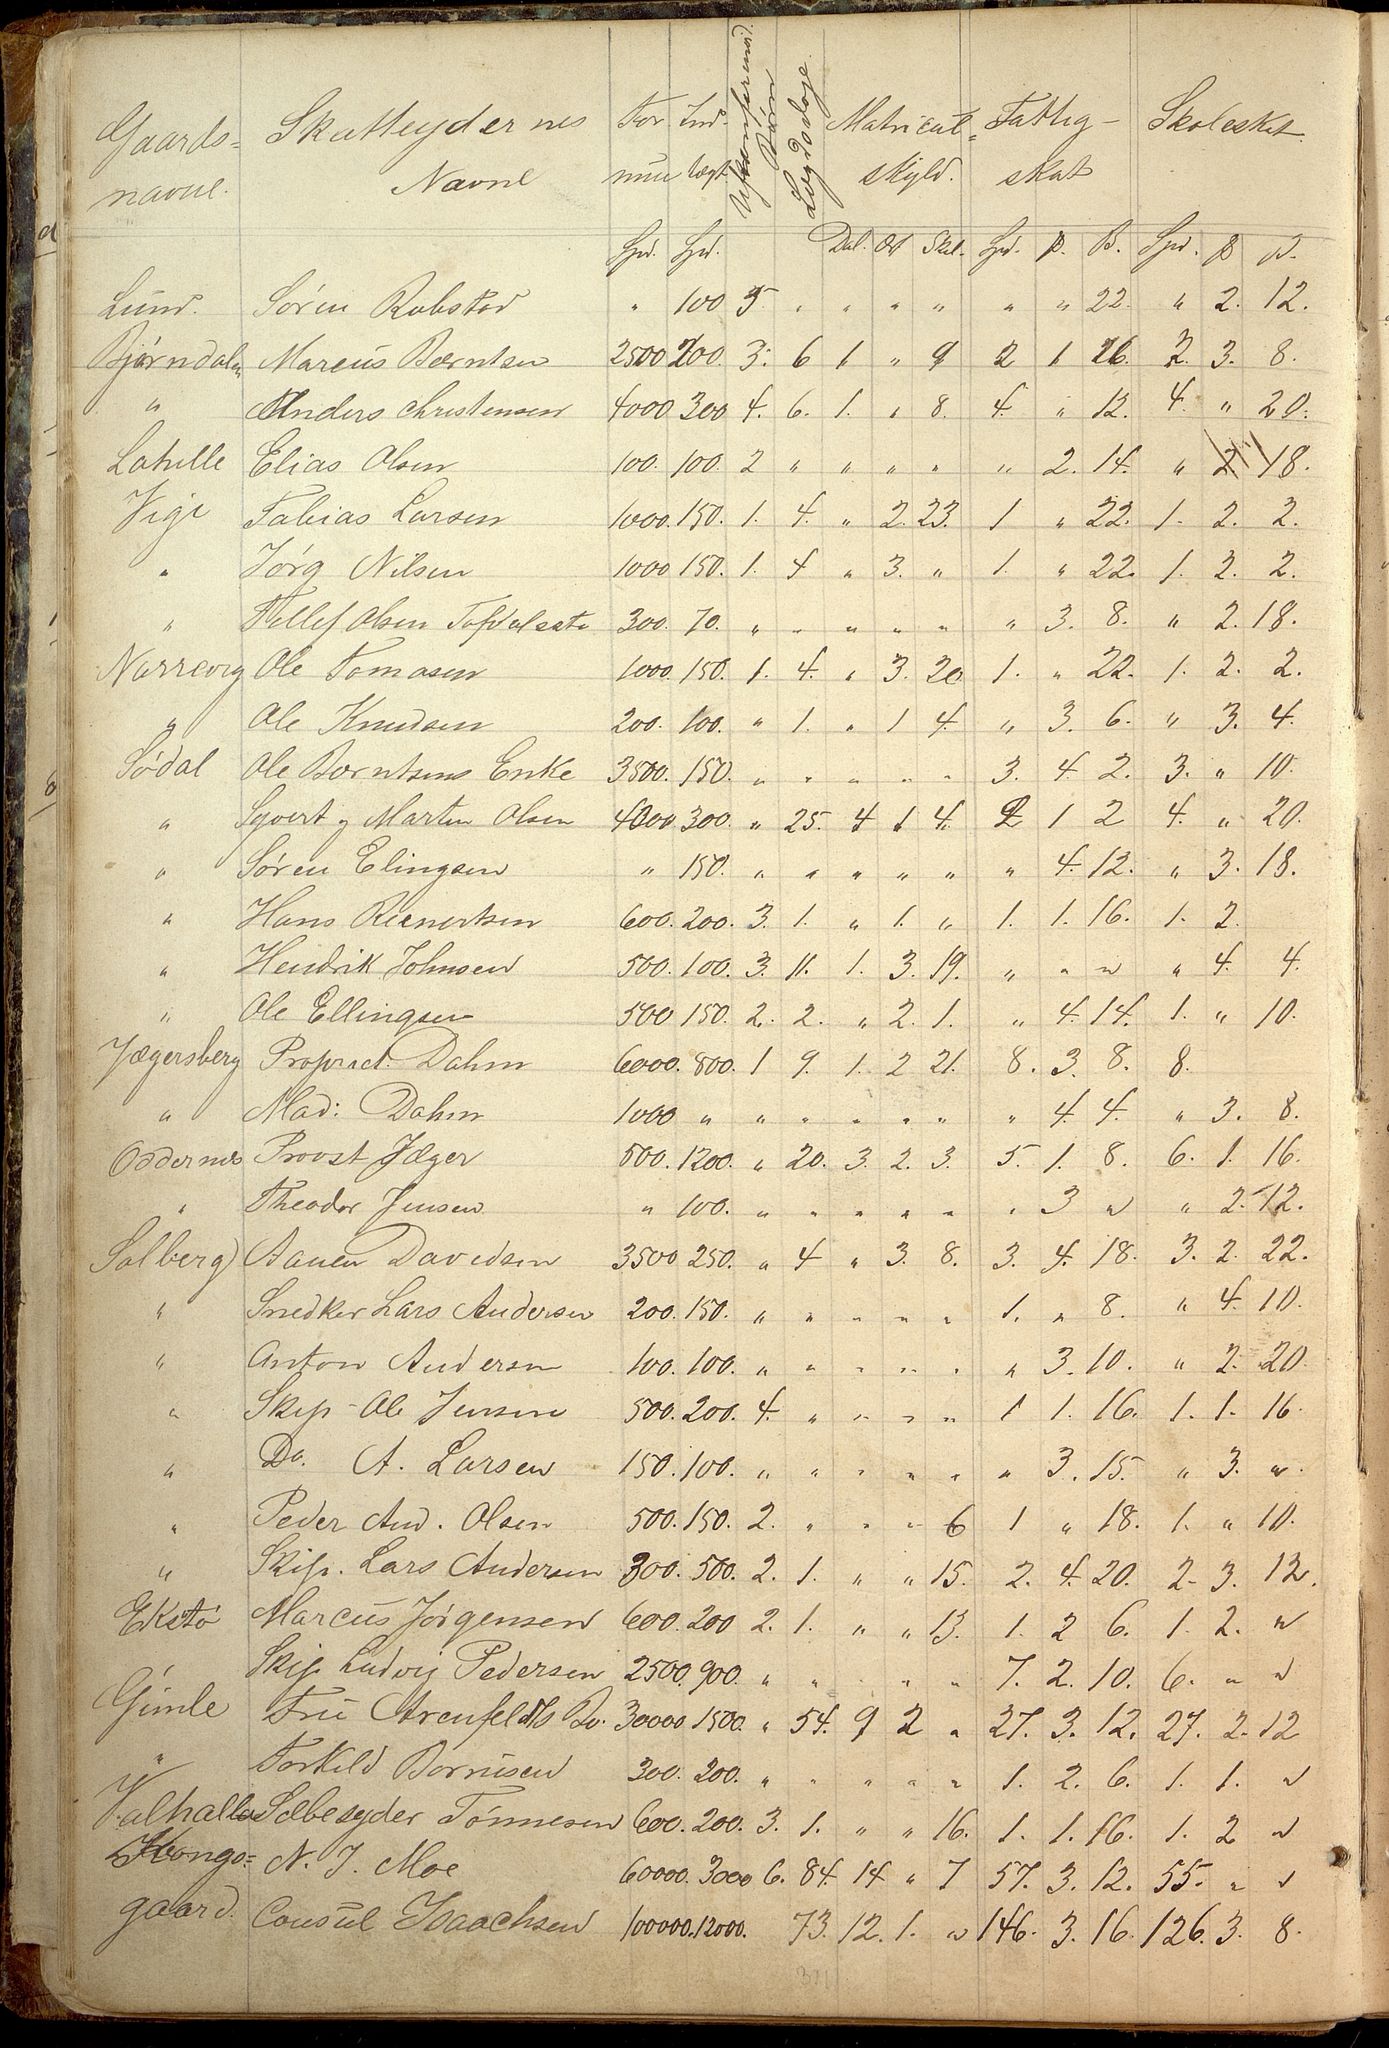 Gaards= Skatteydernes For Ind- Ukonfirmed. Børn Lægdsdage. Matricul= Fattig- Skoleskat.
navne. Navne mue tægt. skyld. skat
Spd. Spd. Dal. Ort Skil. Spd. β. Spd. β
Lund. Sören Robstad " 100 5. " " " " " " 22. " 2. 12.
Bjørndalen Marcus Berntsen 2500 200. 3. 6 1 " 9 2 1 26. 2. 3. 8.
" Anders Christensen 4000 300 4. 6. 1. " 8. 4. " 12. 4. " 20.
Lahelle Elias Olsen 100. 100. 2 " " " " " 2. 14. " 2. 18.
Vige Tobias Larsen 1000. 150. 1. 4. " 2. 23. 1 " 22. 1. 2. 2.
" Jörg Nilsen 1000 150. 1. 4 " 3. " 1. " 22. 1. 2. 2.
" Tellef Olsen 300. 70. " " " " " " 3. 8. " 2. 18.
Narreviig Ole Tomasen 1000. 150. 1. 4. " 3. 20 1. " 22. 1. 2. 2.
" Ole Knudsen 200. 100. " 1. " 1 4. " 3. 6. " 3. 4.
Södal Ole Berntsens Enke 3500. 150. " " " " " 3. 4. 2. 3. " 10.
" Syvert og Martin Olsen 4000 300. " 25. 4 1 4. 2 1 2 4. " 20.
" Sören Elingsen " 150. " " " " " " 4. 12. " 3. 18.
" Hans Reenertsen 600. 200. 3. 1. " 1. " 1. 1. 16. 1. 2.
" Hendrik Johnsen 500. 100. 3. 11. 1. 3. 19. " " " " 4. 4.
" Ole Ellingsen 500 150. 2. 2. " 2. 1. " 4. 14. 1. " 10.
Jægersberg Propriet. Dahm 6000. 800. 1 9. 1. 2 21. 8. 3. 8. 8.
" Mad: Dahm 1000 " " " " " " " 4. 4. " 3. 8.
Oddernes Provst Jæger 500. 1200. " 20. 3. 2. 3. 5. 1. 8. 6. 1. 16.
" Theodor Jensen " 100. " " " " " " 3 " " 2. 12.
Solberg Aanen Davidsen 3500 250. " 4 " 3. 8. 3. 4. 18. 3. 2. 22.
" Snedker Lars Andersen 200. 150. " " " " " 1. " 8. " 4. 10.
" Anton Andersen 100. 100. " " " " " " 3. 10. " 2. 20
" Skip- Ole Jensen 500. 200. 4. " " " " 1 1. 16. 1. 1. 16.
" Do. A. Larsen 150. 100. " " " " " " 3. 15. " 3. "
" Peder And. Olsen 500. 150. 2. " " " 6 1 " 18. 1. " 10.
" Skip. Lars Andersen 300. 500. 2. 1. " " 15. 2. 4. 20. 2. 3. 12.
Ekstö Marcus Jörgensen 600. 200 2. 1. " " 13. 1. 2 6. 1. 2. "
" Skip Ludvig Pedersen 2500. 900. " " " " " 7. 2. 10. 6. " "
Gimle Fru Arenfeldts Bo. 30000 1500. " 54. 9 2 " 27. 3. 12. 27. 2. 12
" Torkild Bornusen 300. 200. " " " " " 1. 2. 6. 1. 1. "
Valhalla Sæbesyder Tönnesen 600. 200. 3. 1. " " 16. 1. 1. 16. 1. 2 "
Kongs= N. J. Moe 60000. 3000 6. 84. 14 " 7 57. 3. 12. 55. " "
gaard. Consul Isaachsen 100000. 12000. 73. 12. 1. " 146. 3. 16. 126. 3. 8.